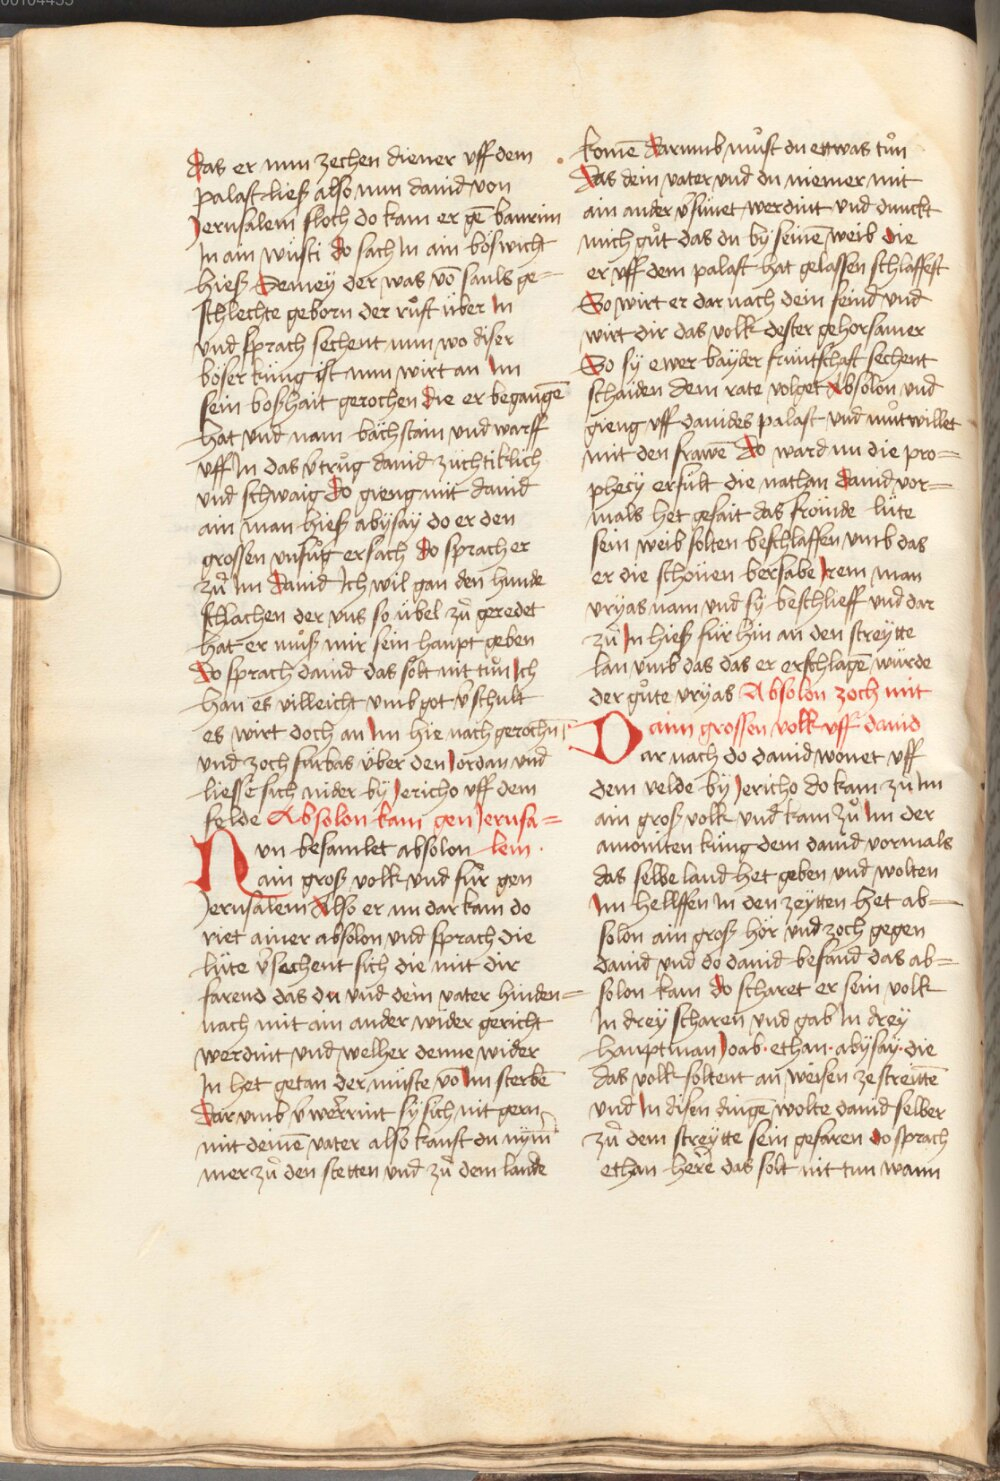 das er nun zechen diener uff dem
palast ließ also nun dauid von
Jerusalem floch do kam er gē baurim
In ain wüsti do sach In ain böswicht
hieß Semey der was vō sauls ge=
schlechte geborn der růft über In
und sprach sechent nun wo diser
böser küng ist nun wirt an Im
sein boßhait gerochen die er begangē
hat und nam bächstain und warff
uff In das v̄trůg dauid züchtiklich
und schwaig do gieng mit dauid
ain man hieß abysay do er den
grossen unfůg ersach do sprach er
zů Im dauid Ich wil gan den hunde
schlachen der uns so übel zů geredet
hat er můß mir sein haupt geben
Do sprach dauid das solt nit tůn Ich
han es villeicht umb got v̄schult
es wirt doch an Im hie nach gerochn̄
und zoch fürbas über den Jordan und
liesse sich nider by Jericho uff dem
felde Absolon kam gen Jerusa=
Nun besamlet absolon lem.
ain groß volk und für gen
Jerusalem Also er nu dar kam do
riet ainer absolon und sprach die
lüte v̄sechent sich die mit dir
farend das du und dein vater hinden=
nach mit ain ander wider gericht
werdint und welher denne wider
In het getan der müste vō Im sterbē
Dar umb v̄werrint sy sich nit gern
mit deinē vater also kanst du nym̄
mer zů den stetten und zů dem lande
komē darumb můst du ettwas tůn
Das dein vater und du niemer mit
ain ander v̄sünet werdint und dunckt
mich gůt das du by seinē weib die
er uff dem palast hat gelassen schlaffest
So wirt er dar nach dein feind und
wirt dir das volk dester gehorsamer
So sy ewer bayder früntschaft sechent
schaiden dem rate volget Absolon und
gieng uff dauides palast und můtwillet
mit den frawē Do ward nu die pro=
phecy erfült die nathan dauid vor=
mals het gesait das fröinde lüte
sein weib solten beschlaffen umb das
er die schönen bersabe Irem man
uryas nam und sy beschlieff und dar
zů In hieß für hin an den streytte
lan umb das das er erschlagē würde
der gůte uryas Absolon zoch mit
Dain grossen volk uff dauid
ar nach do dauid wonet uff
dem velde by Jericho do kam zů Im
ain groß volk und kam zů Im der
amoniten küng dem dauid vormals
das selbe land het geben und wolten
Im hellffen In den zeytten het ab=
solon ain groß hör und zoch gegen
dauid und do dauid befand das ab=
solon kam do scharet er sein volk
In drey scharen und gab In drey
hauptman Joab · ethan · abysay · die
das volk soltent an weisen ze streittē
und In disen dingē wolte dauid selber
zů dem streytte sein gefaren do sprach
ethan here das solt nit tun wann